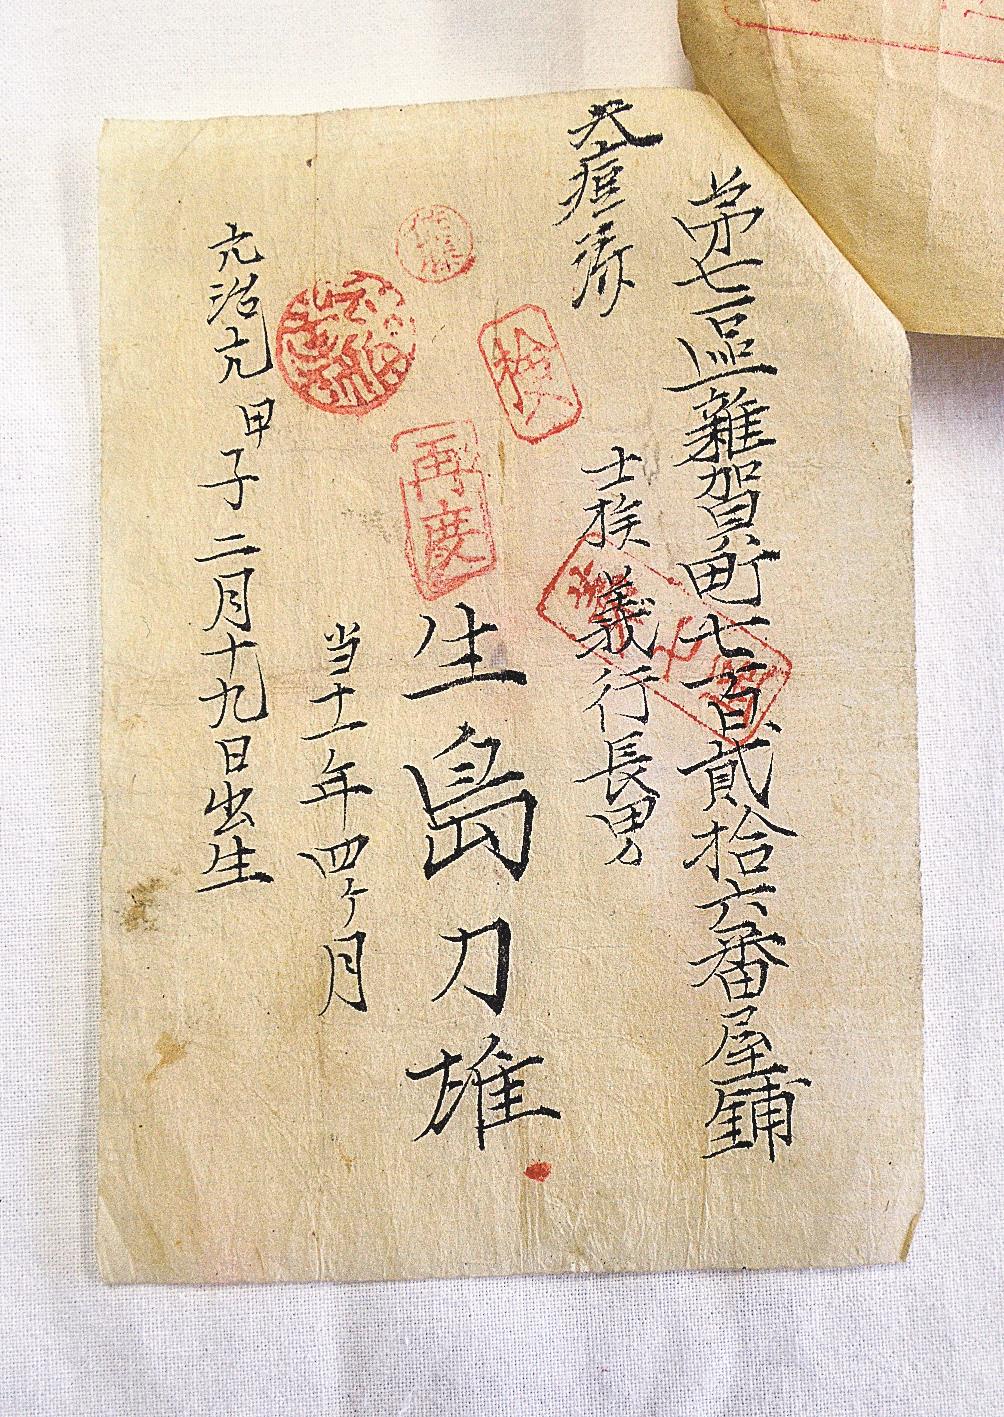 第七区雑賀町七百貳拾六番屋舗
天痘済
士族 義行長男
生島力雄
当十一年四ヶ月
元治元甲子二月十九日出生
再度
検
佐藤